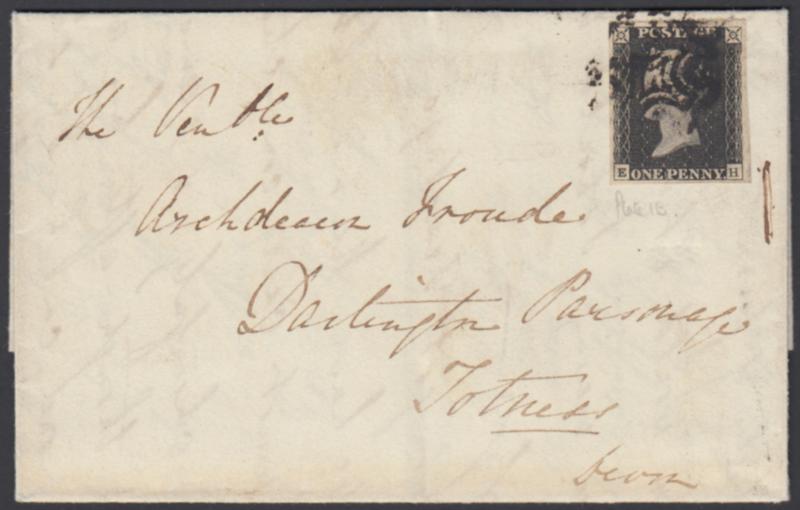 POSTAGE
E ONE PENNY H
Plate 1B.
The Venble
Archdeacon Froude
Dartington Parsonage
Totness
Devon